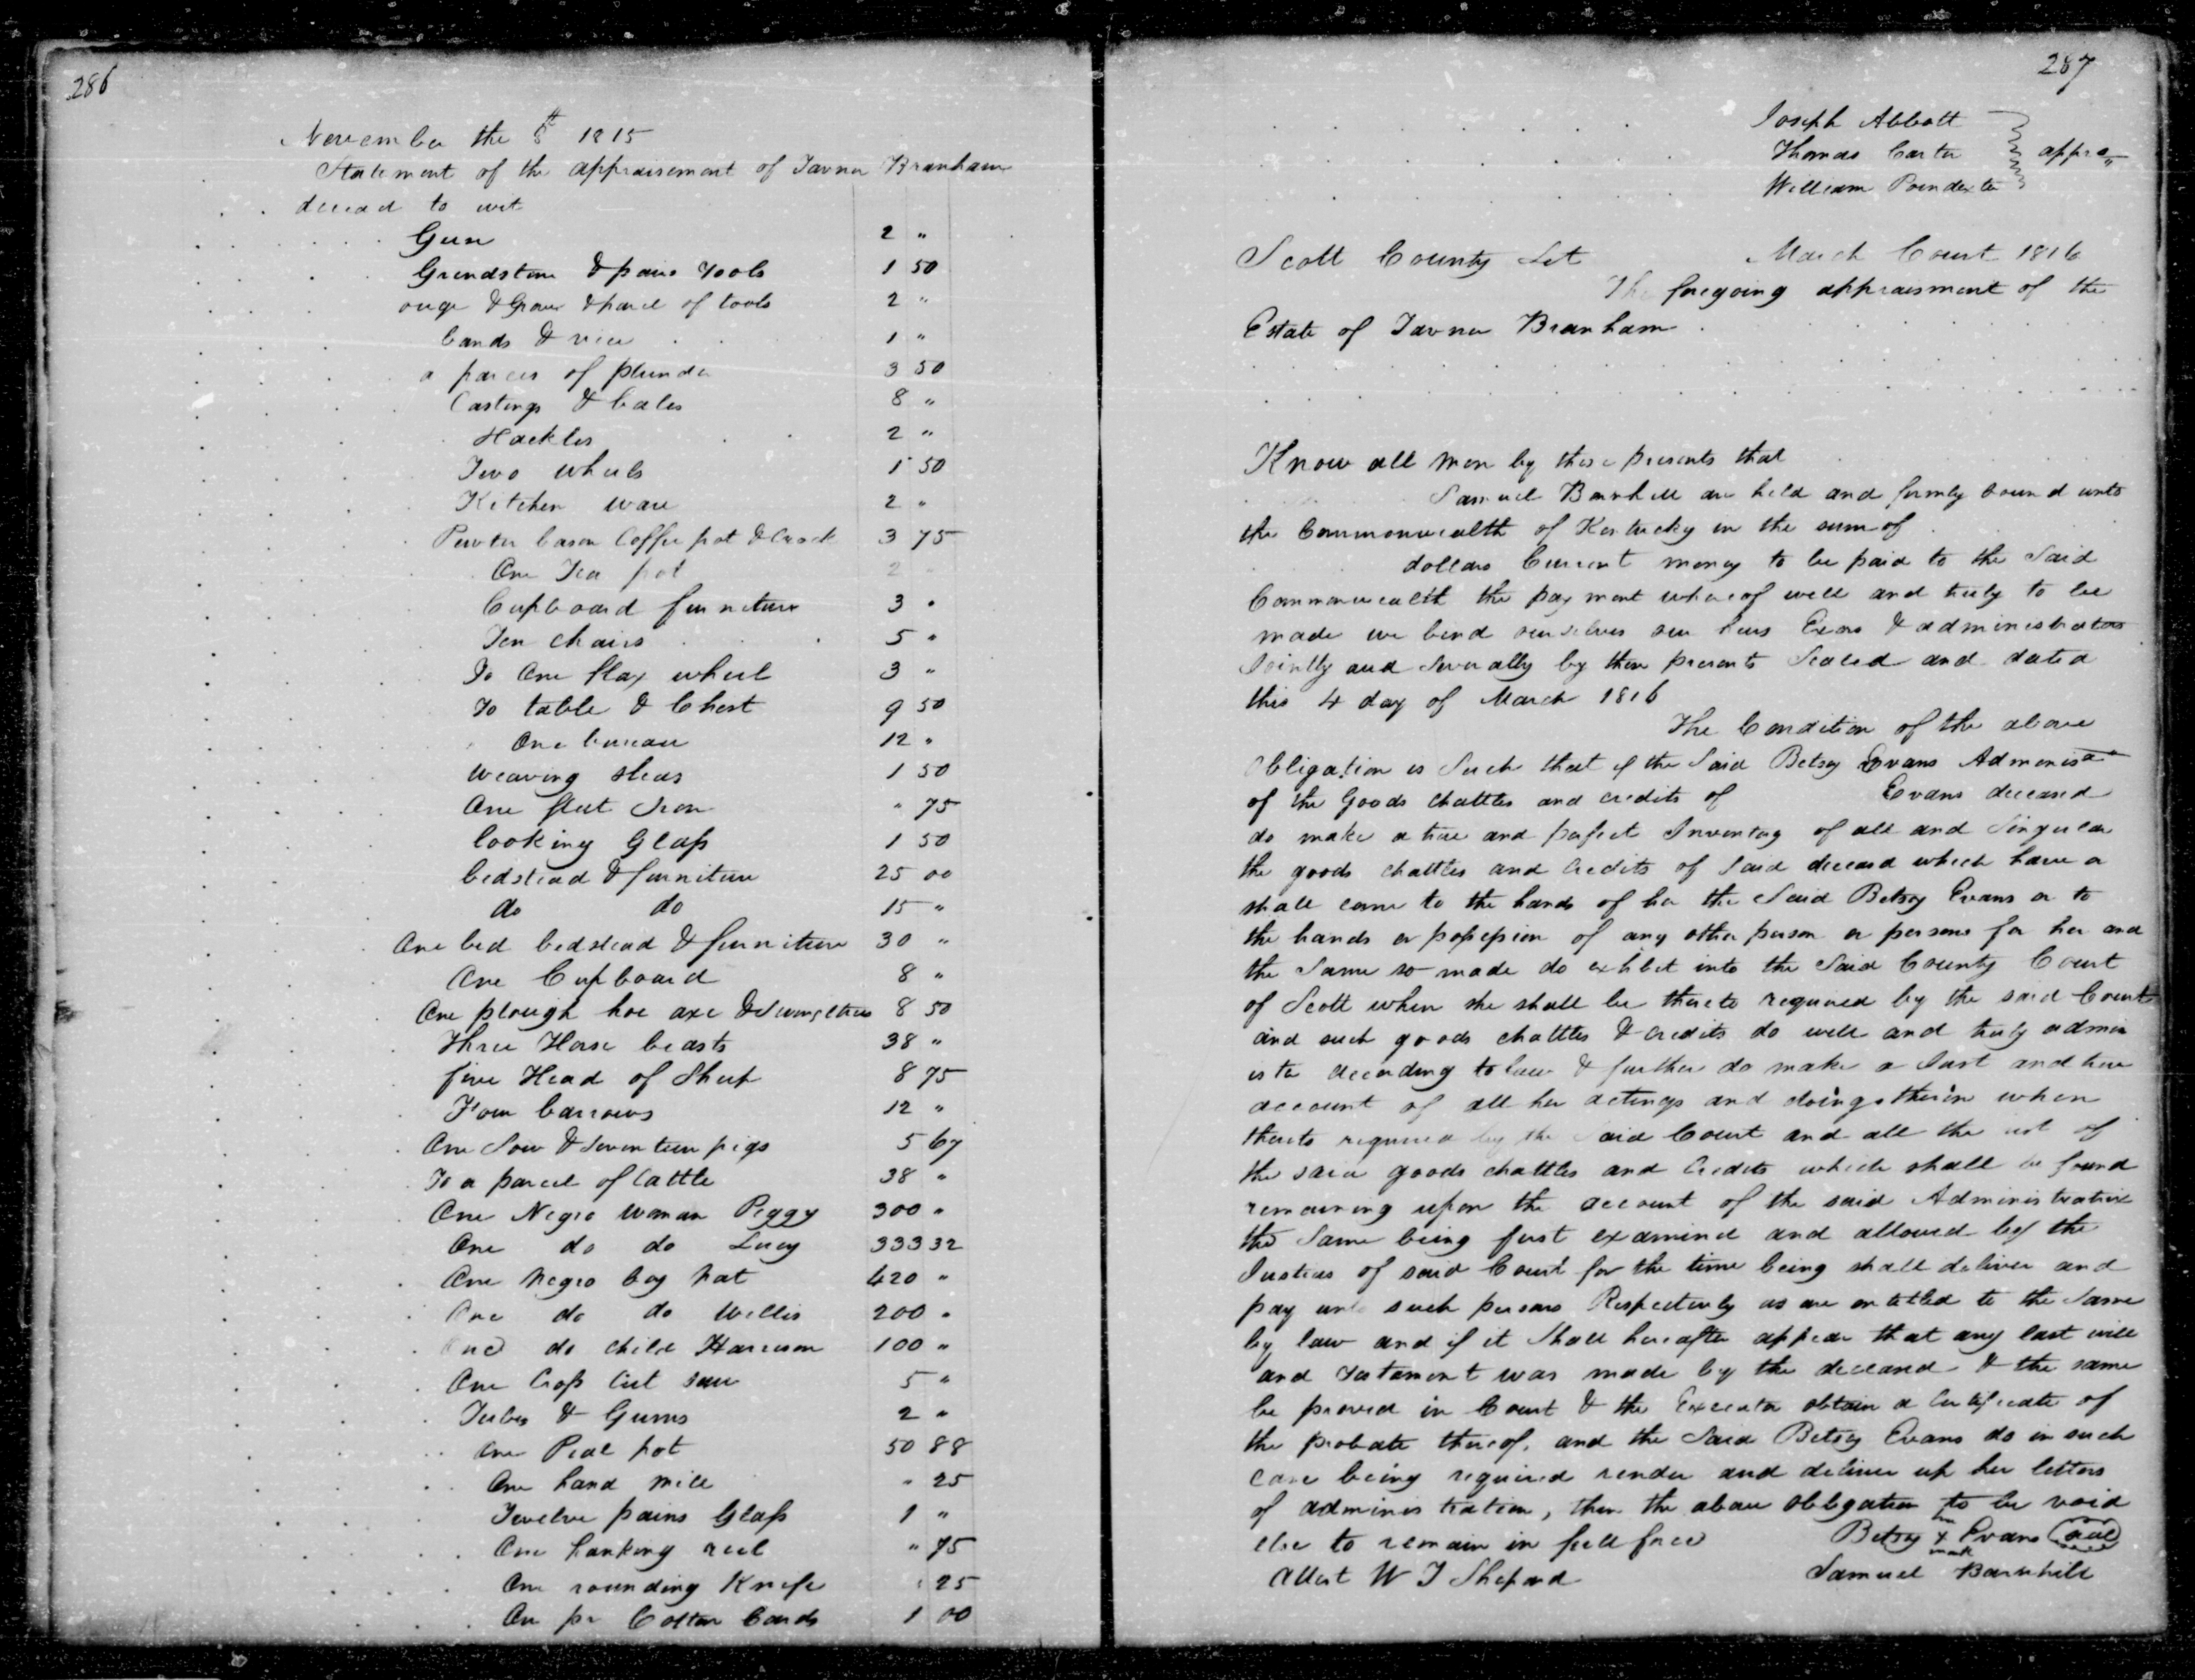 286
November the 8th 1815
Statement of the appraisement of Tavner Branham
deceasd to wit
Gun 2 "
Grindstone & pairs Tools 1 50
& parcel of tools 2 "
bands & vice 1 "
a parcer of plunder 3 50
Castings & bales 8 "
Hackles 2 "
Two wheels 1 50
Kitchen ware 2 "
Pewter bason Coffee pot & Crock 3 75
One Tea pot 2 "
Cupboard furniture 3 "
Ten chairs 5 "
To One flax wheel 3 "
To table & Chest 9 50
One bureau 12 "
weaving sleas 1 50
One flat Iron " 75
looking Glass 1 50
bedstead & furniture 25 00
do do 15 "
One bed bedstead & furniture 30 "
One Cupboard 8 "
One plough hoe axe & Swingletrees 8 50
Three Horse beasts 38 "
five Head of Sheep 8 75
Four barrows 12 "
One Sow & Seventeen pigs 5 67
To a parcel of Cattle 38 "
One Negro woman Peggy 300 "
One do do Lucy 333 32
One Negro boy Nat 420 "
One do do Willis 200 "
One do child Harrison 100 "
One Cross Cut saw 5 "
Tubs & Gums 2 "
One pot 50 88
One hand mill " 25
Twelve pains Glass 1 "
One hanking reel " 75
One rounding Knife " 25
On pr Cotton Cards 1 00
287
Joseph Abbott
Thomas Carter appra
William Poindexter
Scott County Sct March Court 1816
The foregoing appraisment of the
Estate of Tavner Branham
Know all men by these presents that
Samuel Barnhill are held and firmly bound unto
the Commonwealth of Kentucky in the sum of
dollars Current money to be paid to the Said
Commonwealth the payment whereof well and truly to be
made we bend ourselves our heirs Exors & administrators
Jointly and Severally by these presents Sealed and dated
this 4 day of March 1816
The Condition of the above
Obligation is Such that if the Said Betsy Evans Adminisa
of the Goods chattles and credits of Evans deceasd
do make a true and perfect Inventory of all and Singular
the goods chattles and Credits of Said deceasd which have or
shall come to the hands of her the Said Betsy Evans or to
the hands or possession of any other person or persons for her and
the Same so made do exhibit into the Said County Court
of Scott when she shall be thereto required by the said Court
and such goods chattles & Credits do well and truly admin
ister according to law & further do make a Just and true
account of all her actings and doings therein when
thereto required by the Said Court and all the rest of
the said goods chattles and Credits which shall be found
remaining upon the account of the said Administratrix
the Same being first examined and allowed by the
Justices of said Court for the time being shall deliver and
pay unto such persons Respectively as are entitled to the Same
by law and if it Shall hereafter appear that any last will
and Testament was made by the deceasd & the same
be proved in Court & the Executor obtain a Certificate of
the probate thereof, and the Said Betsy Evans do in such
case being required render and deliver up her letters
of administration, then the above obligation to be void
else to remain in full force Betsy her x mark Evans Seal
Attest W J Shepard Samuel Barnhill